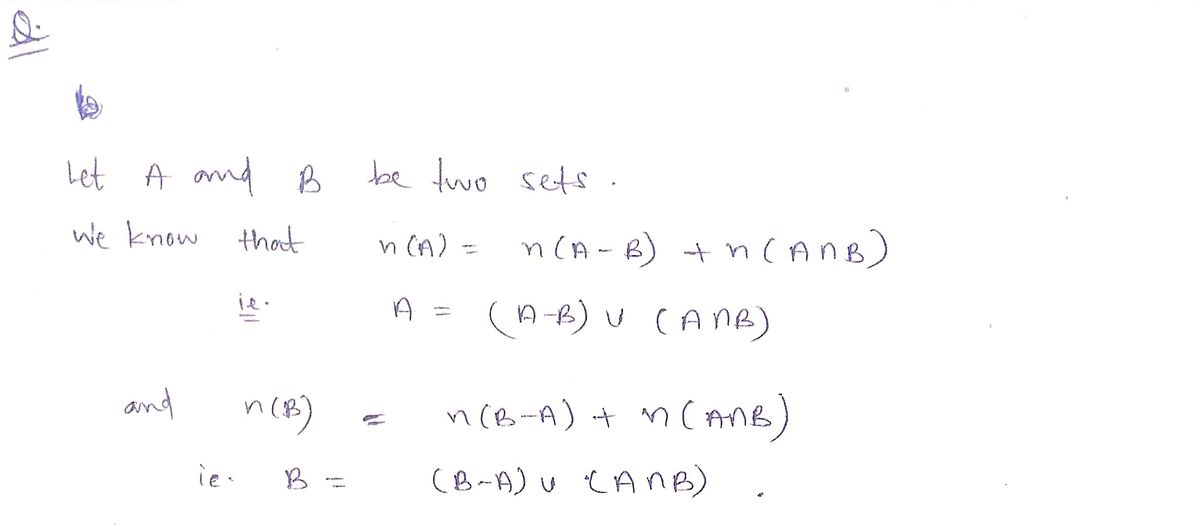 Q.
Let A and B be two sets.
We know that n(A) = n(A-B) + n(A∩B)
ie. A = (A-B) ∪ (A∩B)
and n(B) = n(B-A) + n(A∩B)
ie. B = (B-A) ∪ (A∩B).